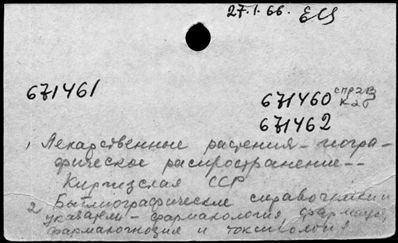 27.1.66. ЕСЦ
671461
671460 спр 2 в
к 2 б
671462
1 Лекарственные растения - геогра-
фическое распространение --
Киргизская ССР
2 Библиографические справочники и
указатели - фармакология, фармация,
фармакогнозия и токсикология